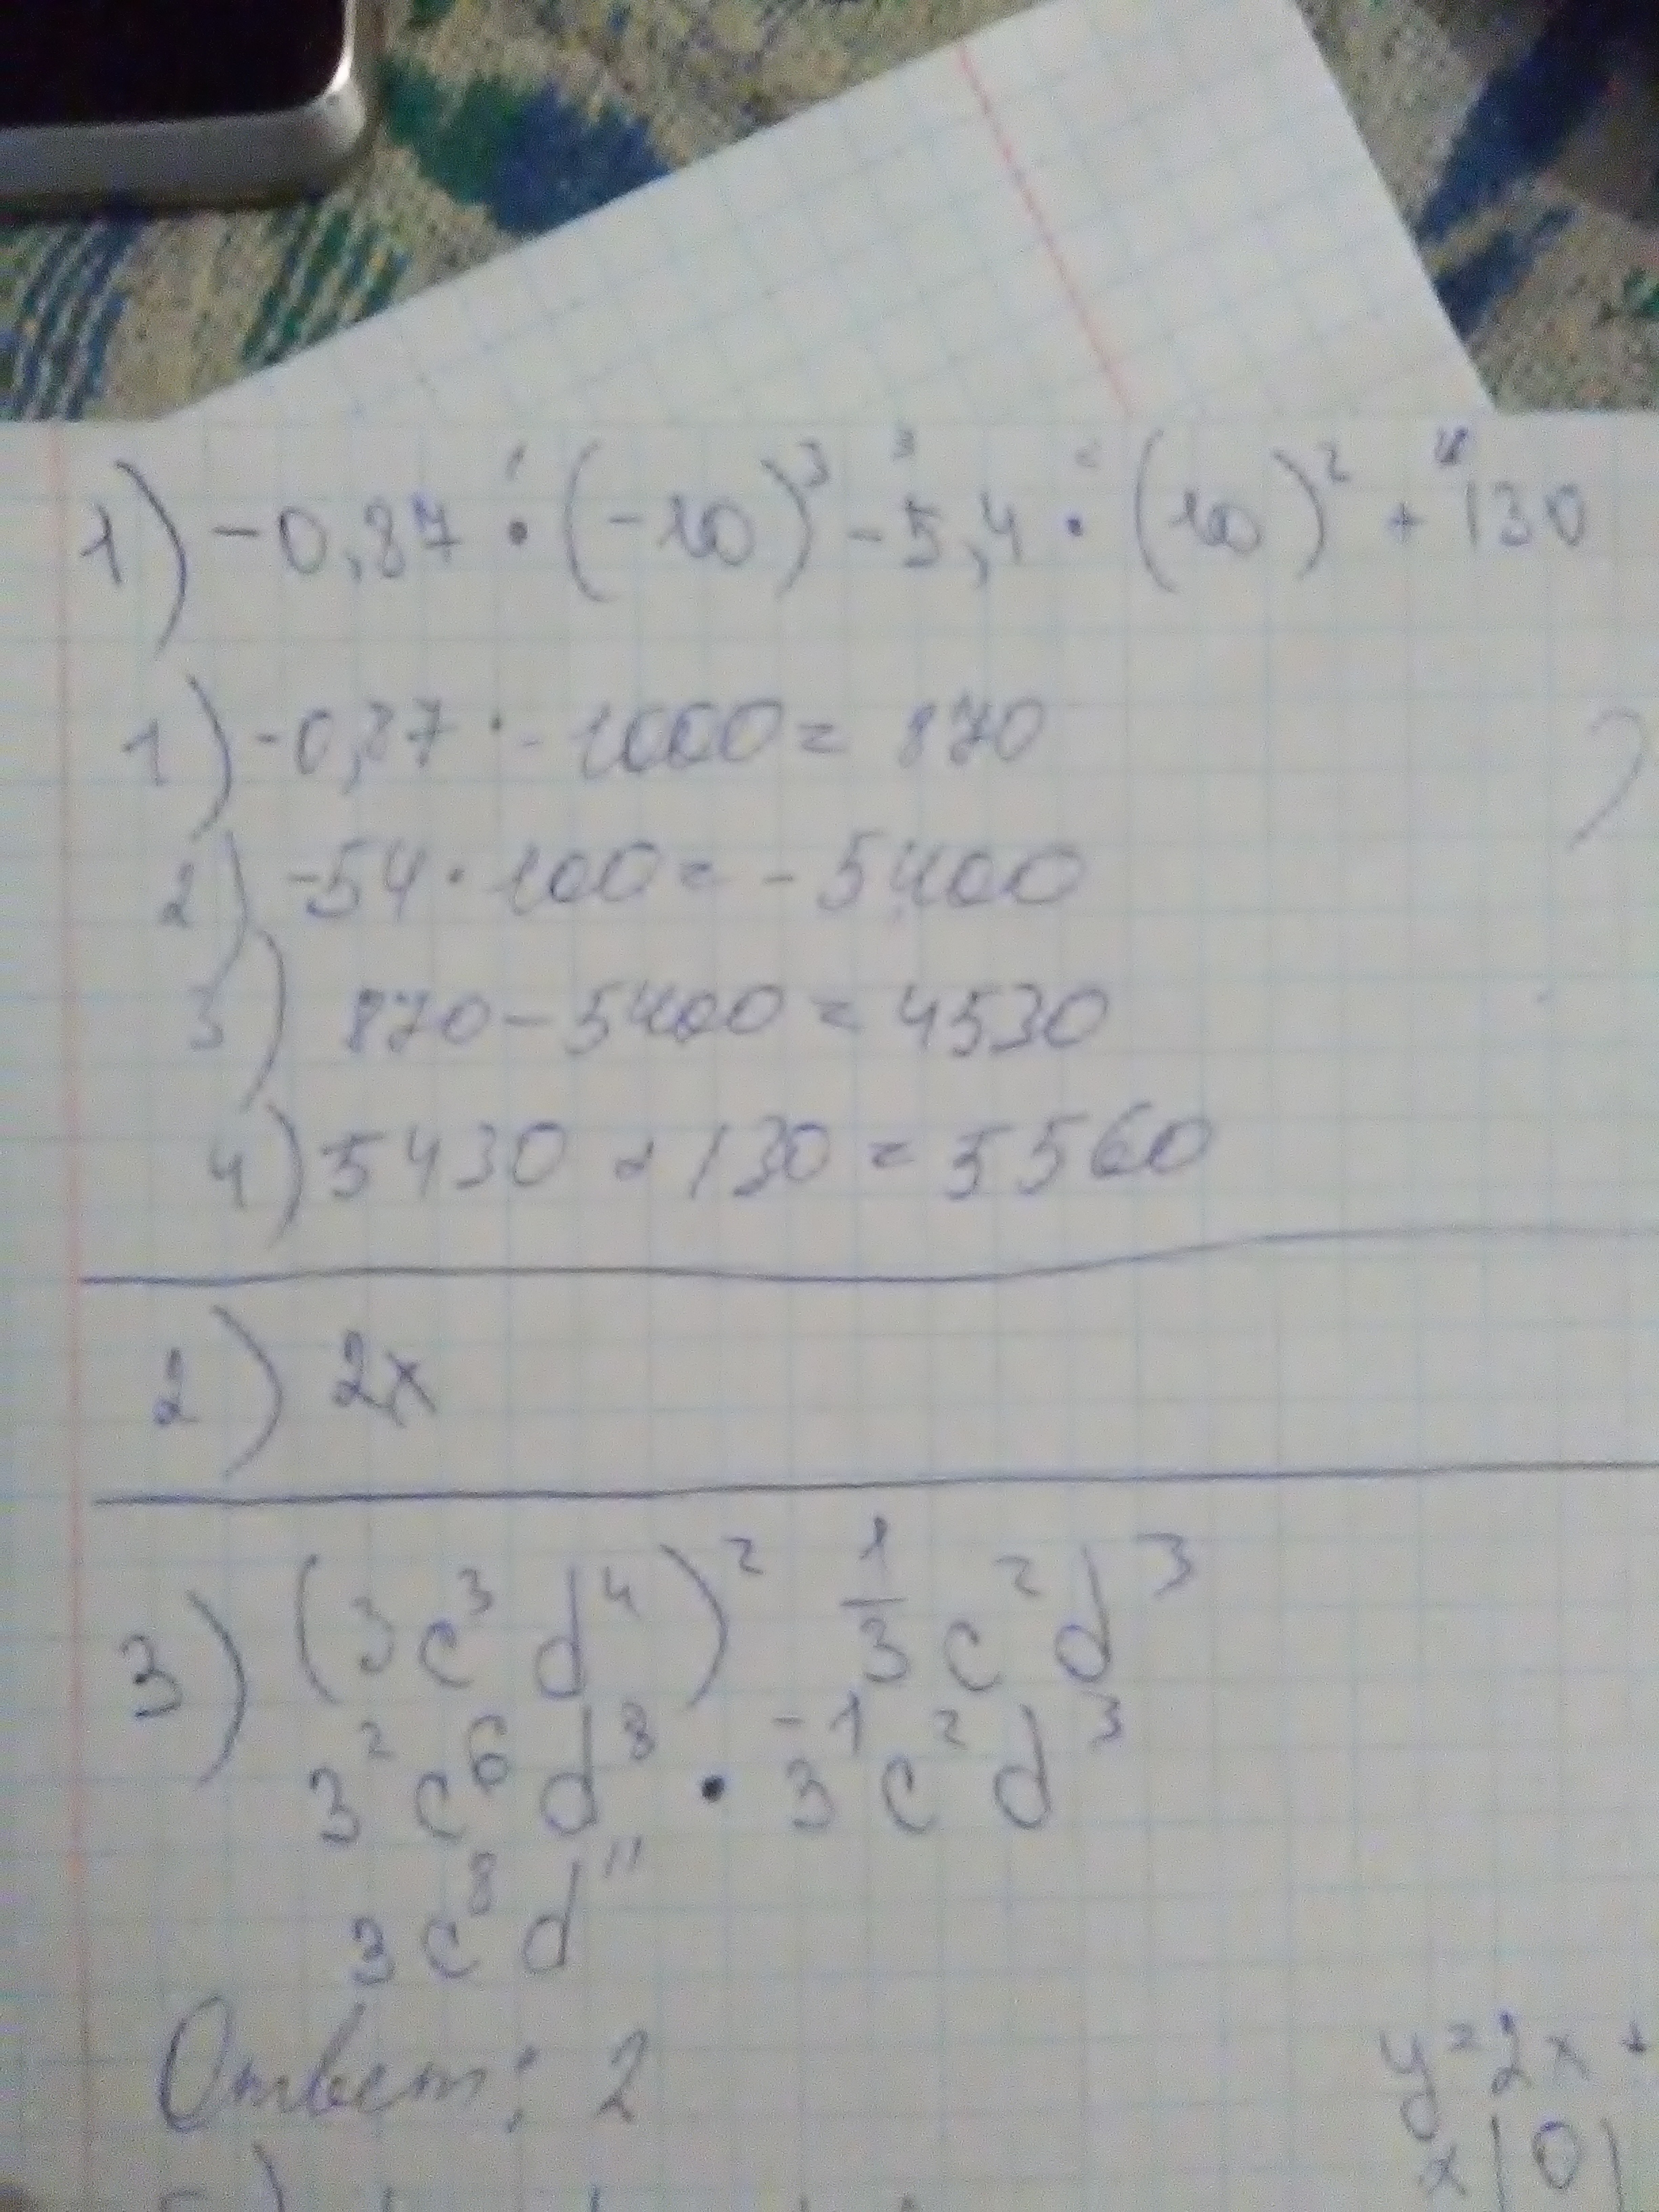 1) -0,87 · (-10)³ - 5,4 · (10)² + 130
1) -0,87 · -1000 = 870
2) -54 · 100 = -5400
3) 870 - 5400 = 4530
4) 5430 + 130 = 5560
2) 2x
3) (3c³d⁴)² 1/3 c²d³
3²c⁶d⁸ · 3⁻¹c²d³
3c⁸d¹¹
Ответ: 2
y = 2x +
x | 0 |